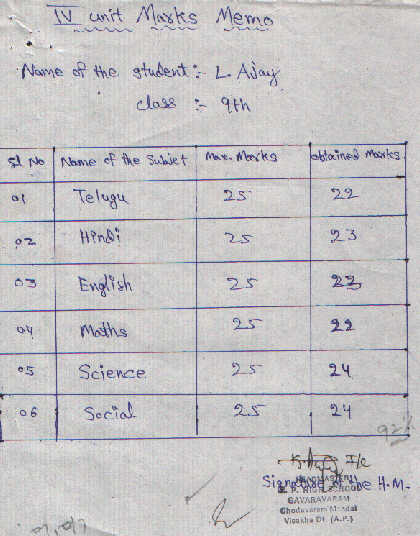 IV unit Marks Memo
Name of the student :- L. Ajay
class :- 9th
Sl No Name of the Subject Max. Marks obtained Marks.
01 Telugu 25 22
02 Hindi 25 23
03 English 25
04 Maths 25 22
05 Science 25 24
06 Social 25 24
92%
I/c
Signature of the H.M.
HEADMASTER
Z. P. HIGH SCHOOL
GAVARAVARAM
Chodavaram Mandal
Visakha Dt. (A.P.)